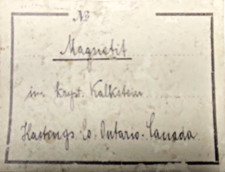 N3
Magnetit
im kryst. Kalkstein
Hastings Co. Ontario-Canada.